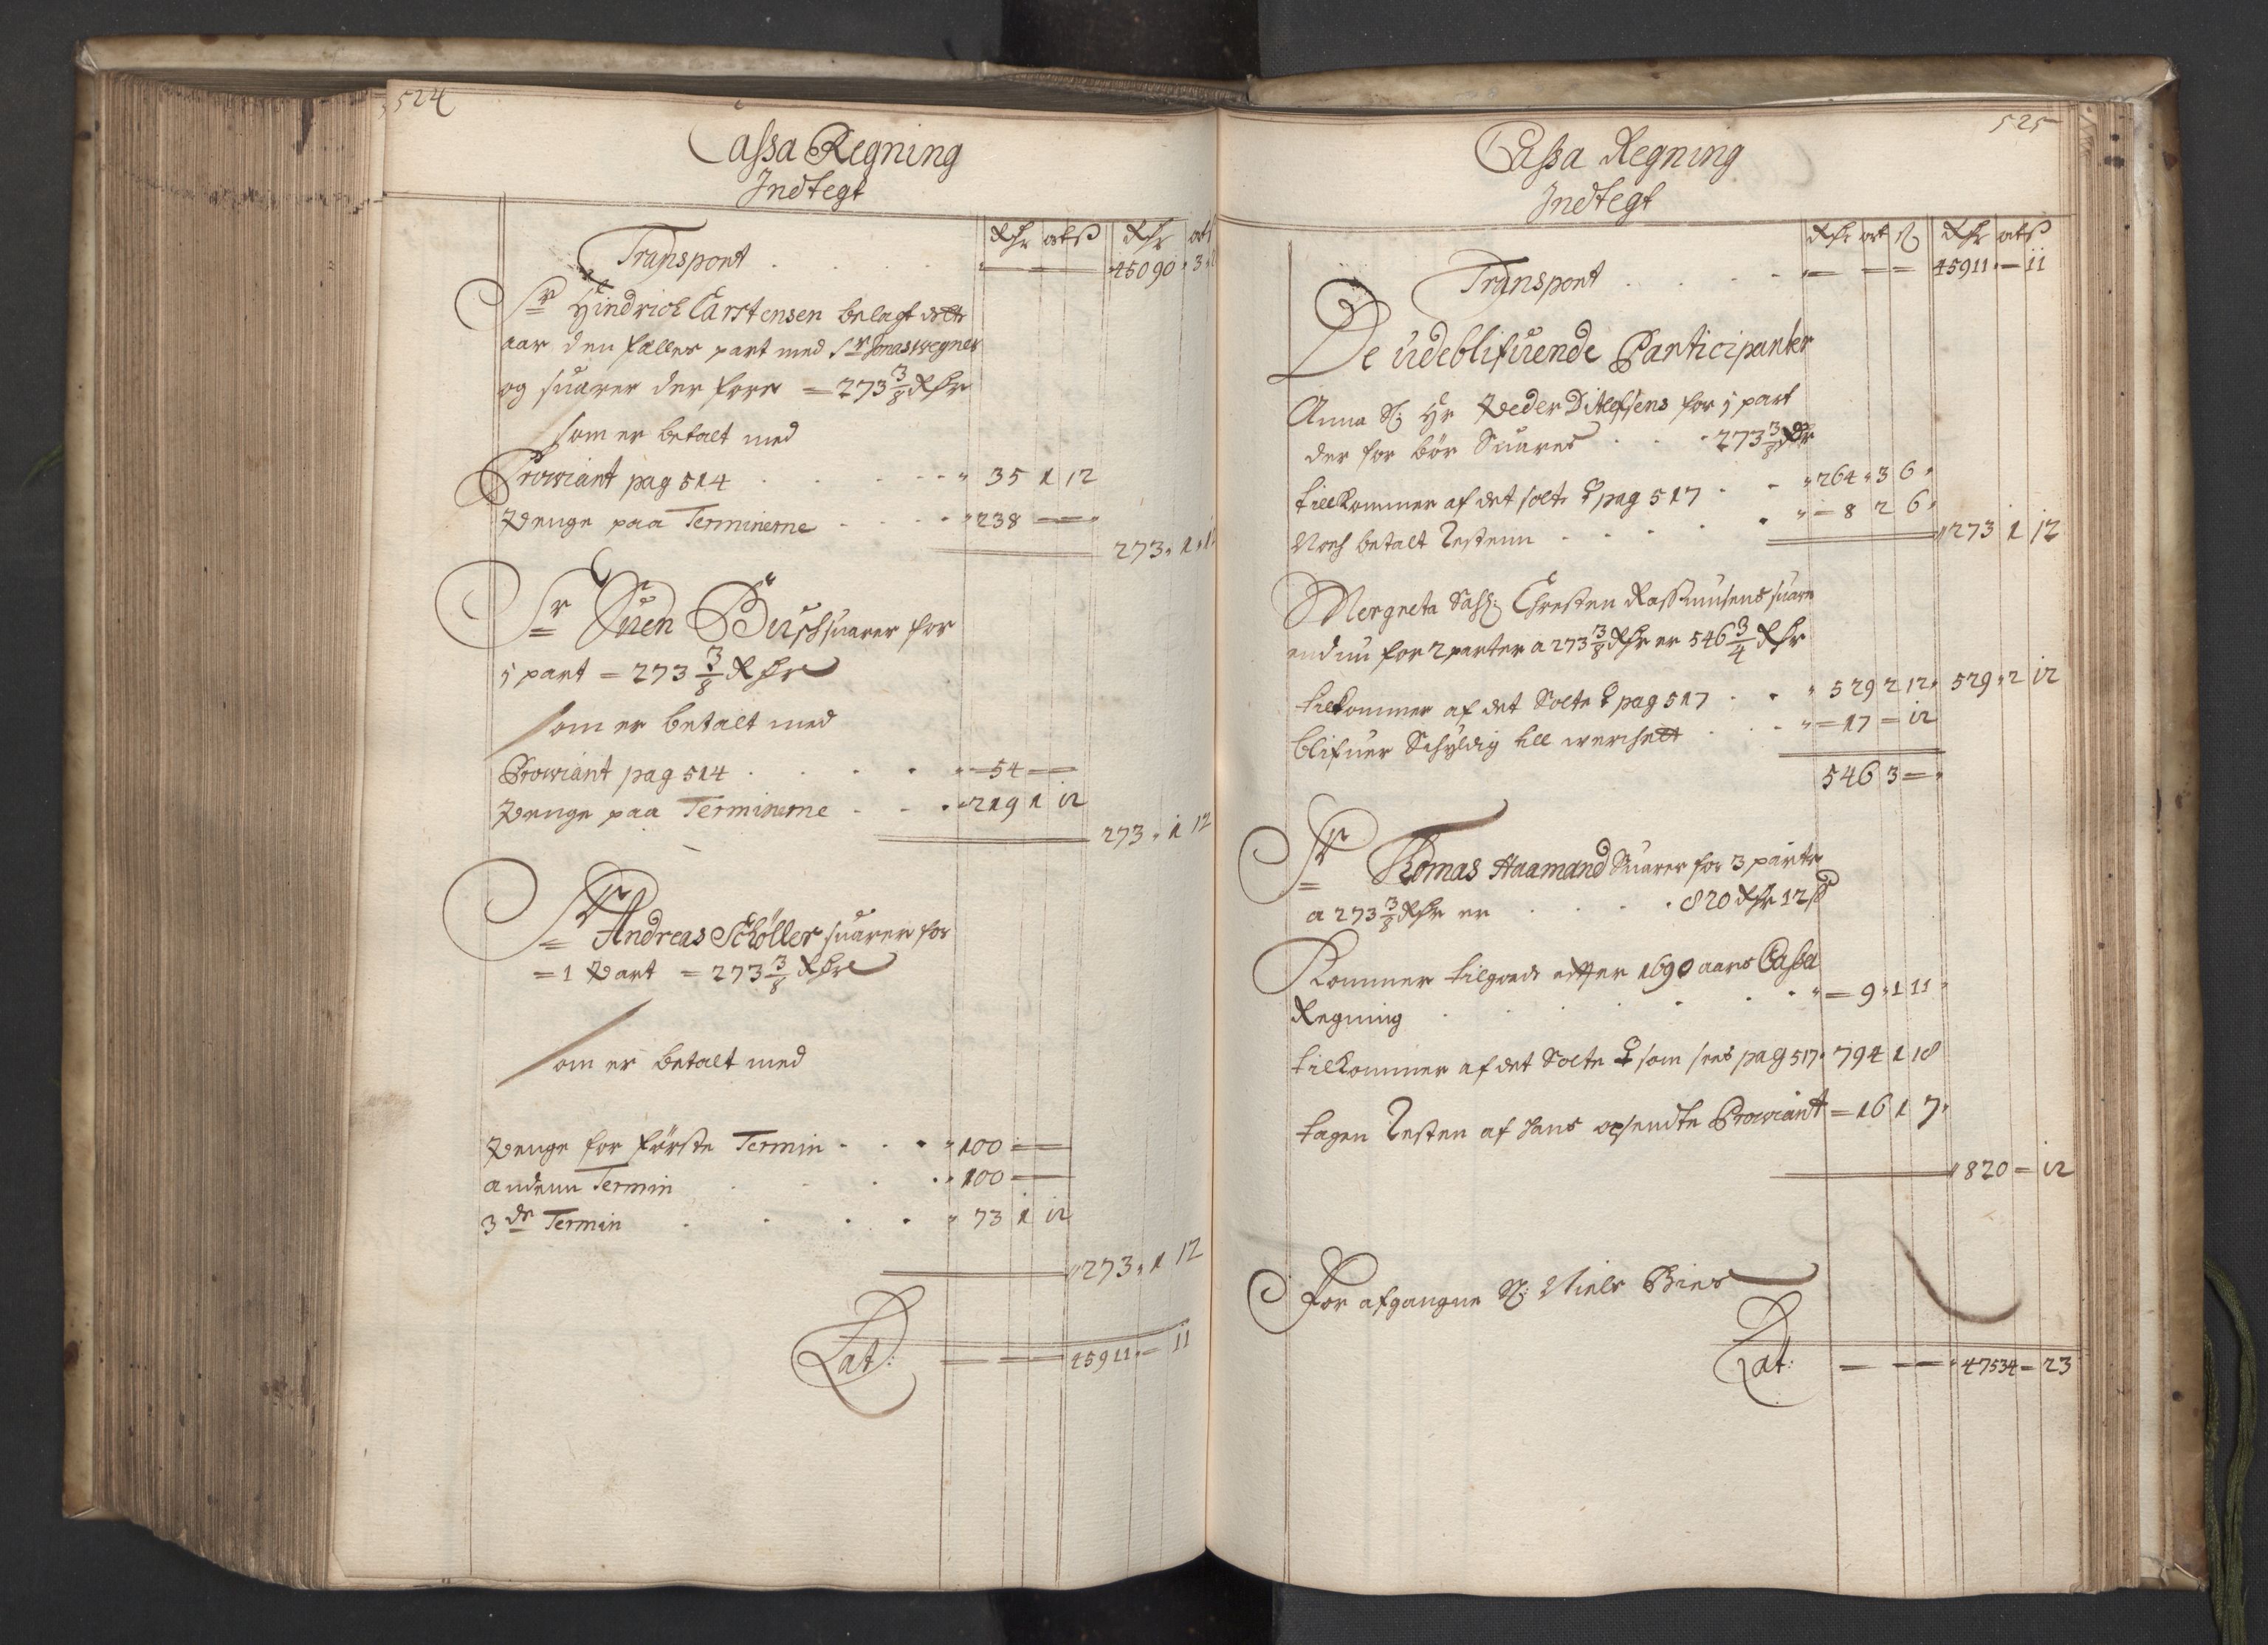 524
Cassa Regning
Indtegt
Rdr ort ß Rdr ort
Transport . . . . 45090 " 3
Sr Hindrich Carstensen belagt dette
aar den fælles part med Sr Jonas Wegner
og suarer der forre = 273 3/8 Rdr
som er betalt med
Prowiant pag 514 . . . . " 35 1 12
Penge paa Terminerne . . . " 238 — "
273 " 1
Sr Suen Busch suarer for
1 part = 273 3/8 Rdr
som er betalt med
Prowiant pag 514 . . . . " = 54 —
Penge paa Terminerne . . . " 219 1 12
273 " 1 12
Sr Andreas Schöller suarer for
= 1 Part = 273 3/8 Rdr
som er betalt med
Penge for förste Termin . . . " 100 —
andenn Termin . . . . " 100 —
3de Termin . . . . " 73 1 12
" 273 " 1 12
Lat: — — 45911 " — 11
525
Cassa Regning
Indtegt
Rdr ort ß Rdr ort ß
Transport . . . . " — — = 45911 " — 11
De udeblifuende Participanter
Anna Sl: Hr Peder Ditlefsens for 1 part
der for bör Suares . . . 273 3/8 Rdr
tillkommer af det solte ♀ pag 517 . . " 264 " 3 6 "
Noch betalt Restenn . . . . " = 8 2 6 "
" 273 1 12
Mergreta Sahl: Chresten Rassmusens suarer
endnu for 2 parter a 273 3/8 Rdr er 546 3/4 Rdr
tilkommer af det Solte ♀ pag 517 . . " 529 2 12 " 529 " 2 12
blifuer Schyldig till werchett . . . " = 17 — 12
546 3 = "
Sr Thomas Haamand Suarer for 3 parter
a 273 3/8 Rdr er . . . . 820 Rdr 12 ß
Kommer tilgode efter 1690 aars Cassa
Regning . . . . " = 9 " 1 11 "
tilkommer af det Solte ♀ som sees pag 517 " 794 1 18
tagen Resten af hans opsendte Prowiant = 16 1 7 "
" 820 — 12
For afgangne Sl: Niels Bies
Lat: — — " 47534 = 23